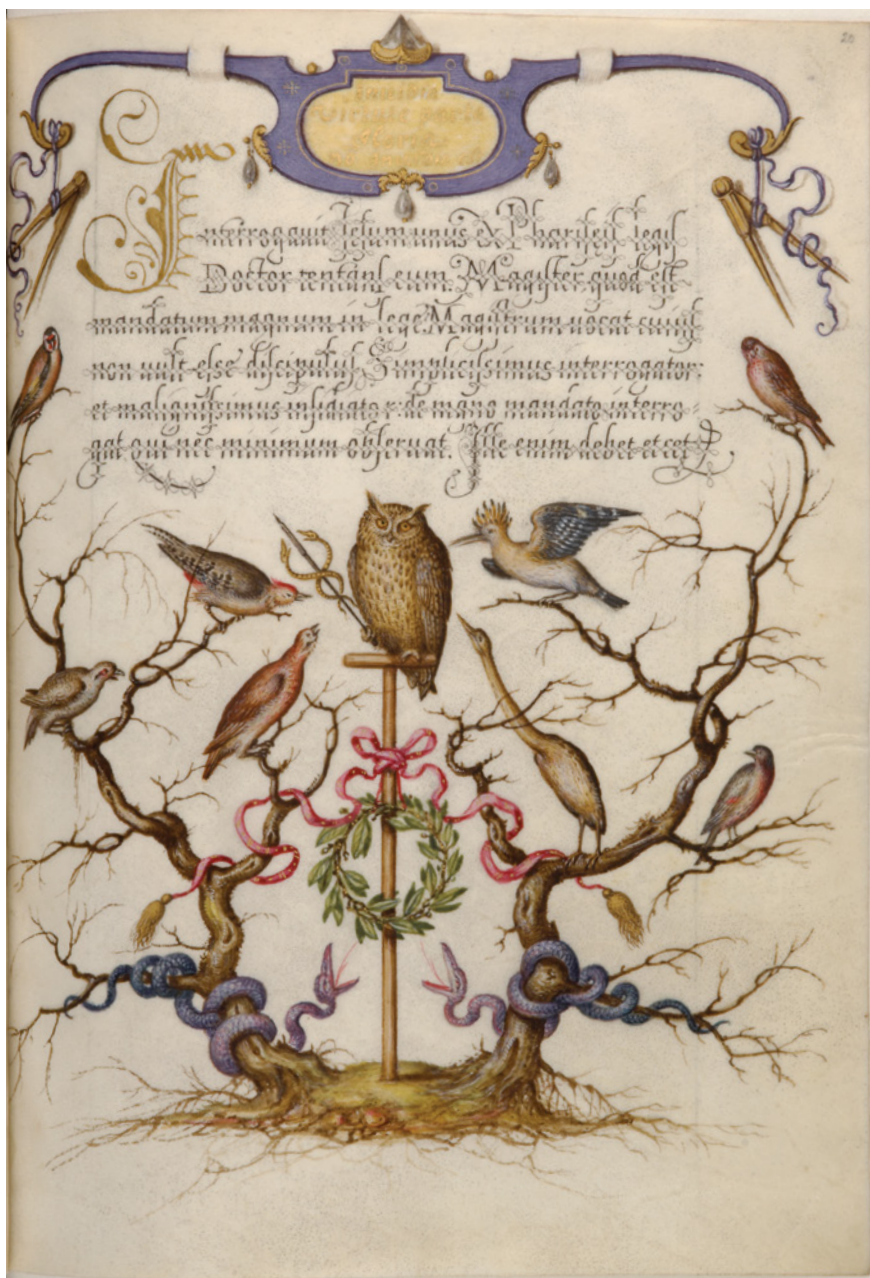 20
Invidia
Virtute parta
Interrogavit Iesum unus ex Phariseis legis
Doctor tentans eum. Magister quod est
mandatum magnum in lege. Magistrum vocat cuius
non vult esse discipulus. Simplicissimus interrogator:
et malignissimus insidiator: de magno mandato interro-
gat qui nec minimum observat. Ille enim debet et cet